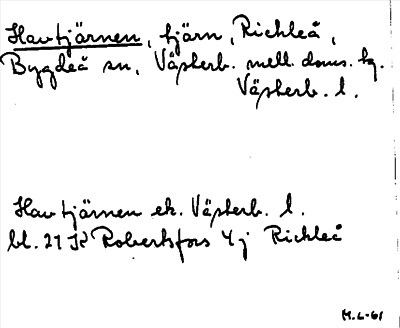 Havtjärnen, tjärn, Rickleå,
Bygdeå sn, Västerb. mell. doms. tg.
Västerb. l.
Havtjärnen ek. Västerb. l.
bl. 21 K Robertsfors 4 j Rickleå
M.L-61